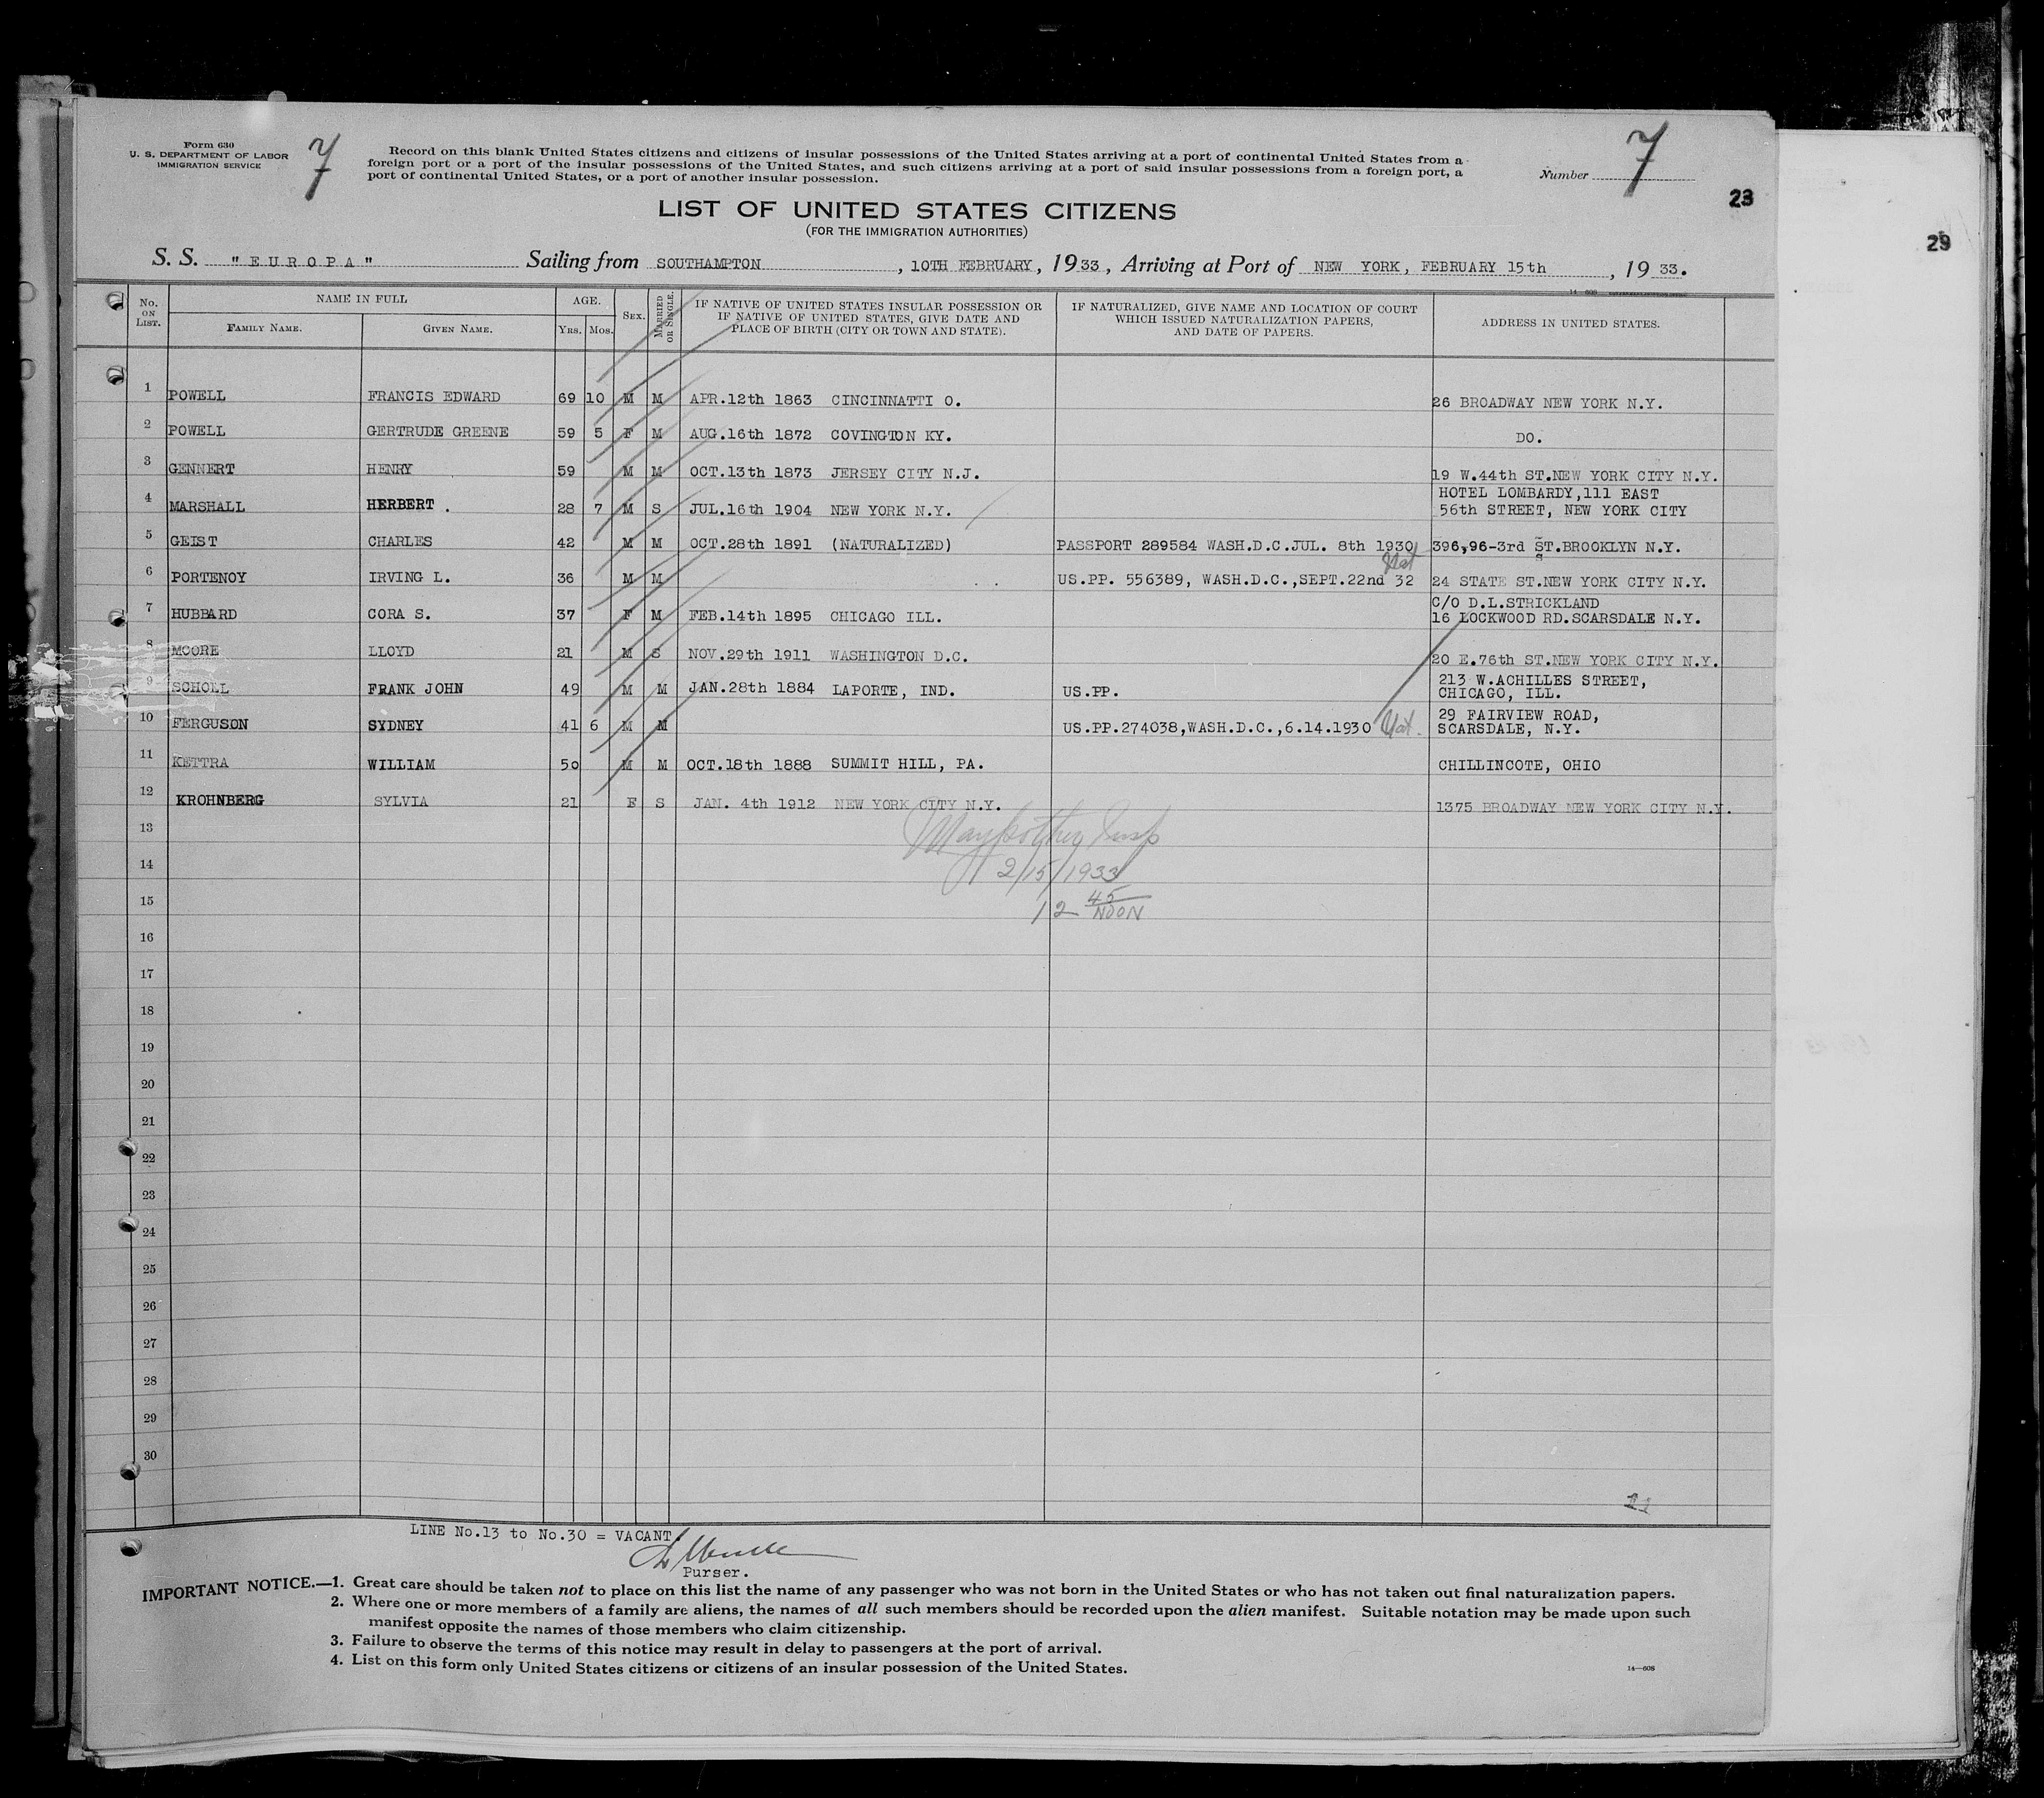 Form 630
U. S. DEPARTMENT OF LABOR
IMMIGRATION SERVICE
7
Record on this blank United States citizens and citizens of insular possessions of the United States arriving at a port of continental United States from a
foreign port or a port of the insular possessions of the United States, and such citizens arriving at a port of said insular possessions from a foreign port, a
port of continental United States, or a port of another insular possession.
Number 7
23
29
LIST OF UNITED STATES CITIZENS
(FOR THE IMMIGRATION AUTHORITIES)
S. S. "EUROPA" Sailing from SOUTHAMPTON, 10TH FEBRUARY, 1933, Arriving at Port of NEW YORK, FEBRUARY 15th, 1933.
No. ON LIST. NAME IN FULL FAMILY NAME. GIVEN NAME. AGE. Yrs. Mos. SEX. MARRIED OR SINGLE. IF NATIVE OF UNITED STATES INSULAR POSSESSION OR IF NATIVE OF UNITED STATES, GIVE DATE AND PLACE OF BIRTH (CITY OR TOWN AND STATE). IF NATURALIZED, GIVE NAME AND LOCATION OF COURT WHICH ISSUED NATURALIZATION PAPERS, AND DATE OF PAPERS. ADDRESS IN UNITED STATES.
1 POWELL FRANCIS EDWARD 69 10 M M APR.12th 1863 CINCINNATTI O. 26 BROADWAY NEW YORK N.Y.
2 POWELL GERTRUDE GREENE 59 5 F M AUG.16th 1872 COVINGTON KY. DO.
3 GENNERT HENRY 59 M M OCT.13th 1873 JERSEY CITY N.J. 19 W.44th ST.NEW YORK CITY N.Y.
4 MARSHALL HERBERT . 28 7 M S JUL.16th 1904 NEW YORK N.Y. HOTEL LOMBARDY,111 EAST
56th STREET, NEW YORK CITY
5 GEIST CHARLES 42 M M OCT.28th 1891 (NATURALIZED) PASSPORT 289584 WASH.D.C.JUL. 8th 1930 396,96-3rd ST.BROOKLYN N.Y.
6 PORTENOY IRVING L. 36 M M US.PP. 556389, WASH.D.C.,SEPT.22nd 32 Nat 24 STATE ST.NEW YORK CITY N.Y.
7 HUBBARD CORA S. 37 F M FEB.14th 1895 CHICAGO ILL. C/O D.L.STRICKLAND
16 LOCKWOOD RD.SCARSDALE N.Y.
8 MOORE LLOYD 21 M S NOV.29th 1911 WASHINGTON D.C. 20 E.76th ST.NEW YORK CITY N.Y.
9 SCHOLL FRANK JOHN 49 M M JAN.28th 1884 LAPORTE, IND. US.PP. 213 W.ACHILLES STREET,
CHICAGO, ILL.
10 FERGUSON SYDNEY 41 6 M M US.PP.274038,WASH.D.C.,6.14.1930 Nat. 29 FAIRVIEW ROAD,
SCARSDALE, N.Y.
11 KETTRA WILLIAM 50 M M OCT.18th 1888 SUMMIT HILL, PA. CHILLINCOTE, OHIO
12 KROHNBERG SYLVIA 21 F S JAN. 4th 1912 NEW YORK CITY N.Y. 1375 BROADWAY NEW YORK CITY N.Y.
13
14 2/15/1933
15 12 45 NOON
16
17
18
19
20
21
22
23
24
25
26
27
28
29
30
11
LINE No.13 to No.30 = VACANT
Purser.
IMPORTANT NOTICE.—1. Great care should be taken not to place on this list the name of any passenger who was not born in the United States or who has not taken out final naturalization papers.
2. Where one or more members of a family are aliens, the names of all such members should be recorded upon the alien manifest. Suitable notation may be made upon such
manifest opposite the names of those members who claim citizenship.
3. Failure to observe the terms of this notice may result in delay to passengers at the port of arrival.
4. List on this form only United States citizens or citizens of an insular possession of the United States.
14—608